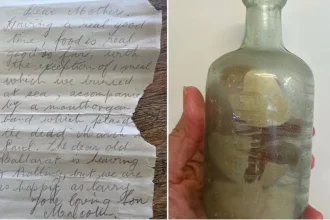 Dear Mother,
Having a real good
time, food is real
good so far, with
the exception of one meal
which we buried
at sea, accompanied
by a mouthorgan
band which played
the dead march in
Saul. The dear old
Ballarat is heaving
& rolling, but we are
as happy as larry
You loving Son
Malcolm.